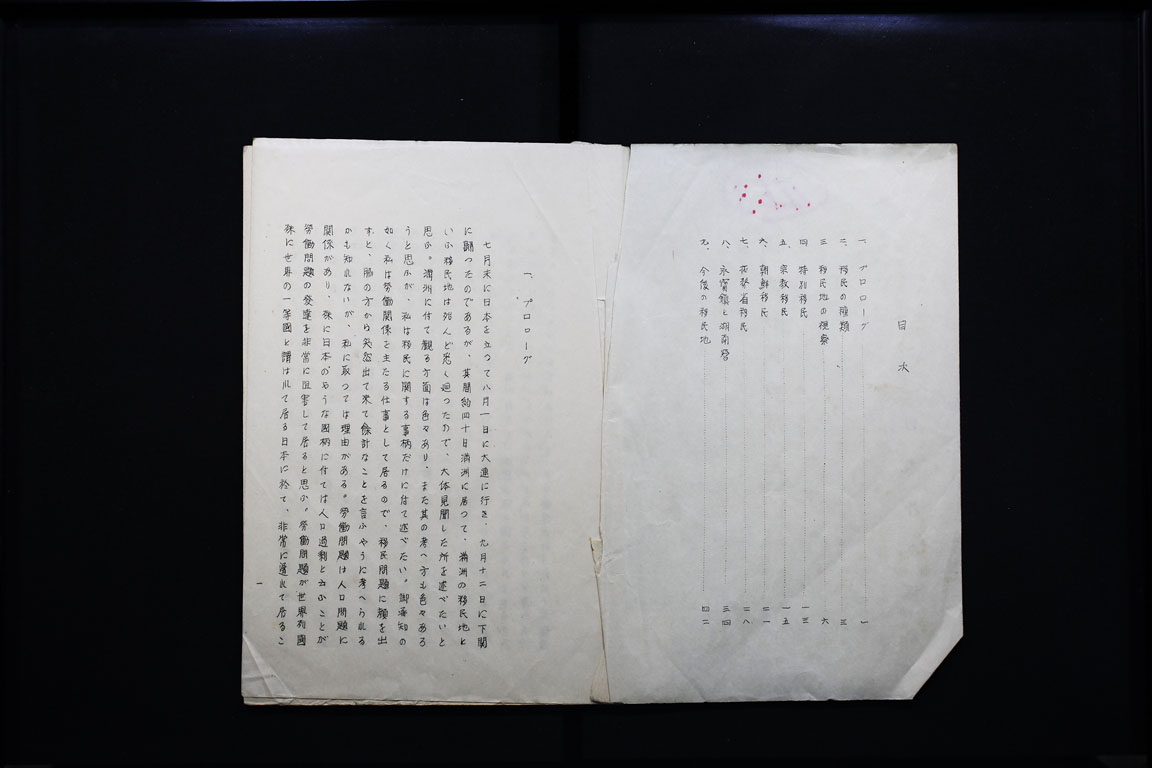 目次
一、プロローグ 一
二、移民の種類 三
三、移民地の視察 六
四、特別移民 一三
五、宗教移民 一五
六、朝鮮移民 二一
七、夜勢省移民 二八
八、永安鎮と湖南營 三四
九、今後の移民地 四二
一、プロローグ
七月末に日本を立つて八月一日に大連に行き、九月十二日に下関
に歸つたのであるが、其間約四十日滿洲に居つて、滿洲の移民地と
いふ移民地は殆んど悉く廻つたので、大体見聞した所を述べたいと
思ふ。滿洲に付て觀る方面は色々あり、また其の考へ方も色々ある
うと思ふが、私は移民に関する事柄だけに付て述べたい。御承知の
如く私は勞働関係を主たる仕事として居るので、移民問題に顔を出
すと、脇の方から突然出て来て餘計なことを言ふやうに考へられる
かも知れないが、私に取つては理由がある。勞働問題は人口問題に
関係があり、殊に日本のやうな國柄に付ては人口過剩と云ふことが
勞働問題の發達を非常に阻害して居ると思ふ。勞働問題が世界列國
殊に世界の一等國と謂はれて居る日本に於て、非常に遅れて居るこ
一